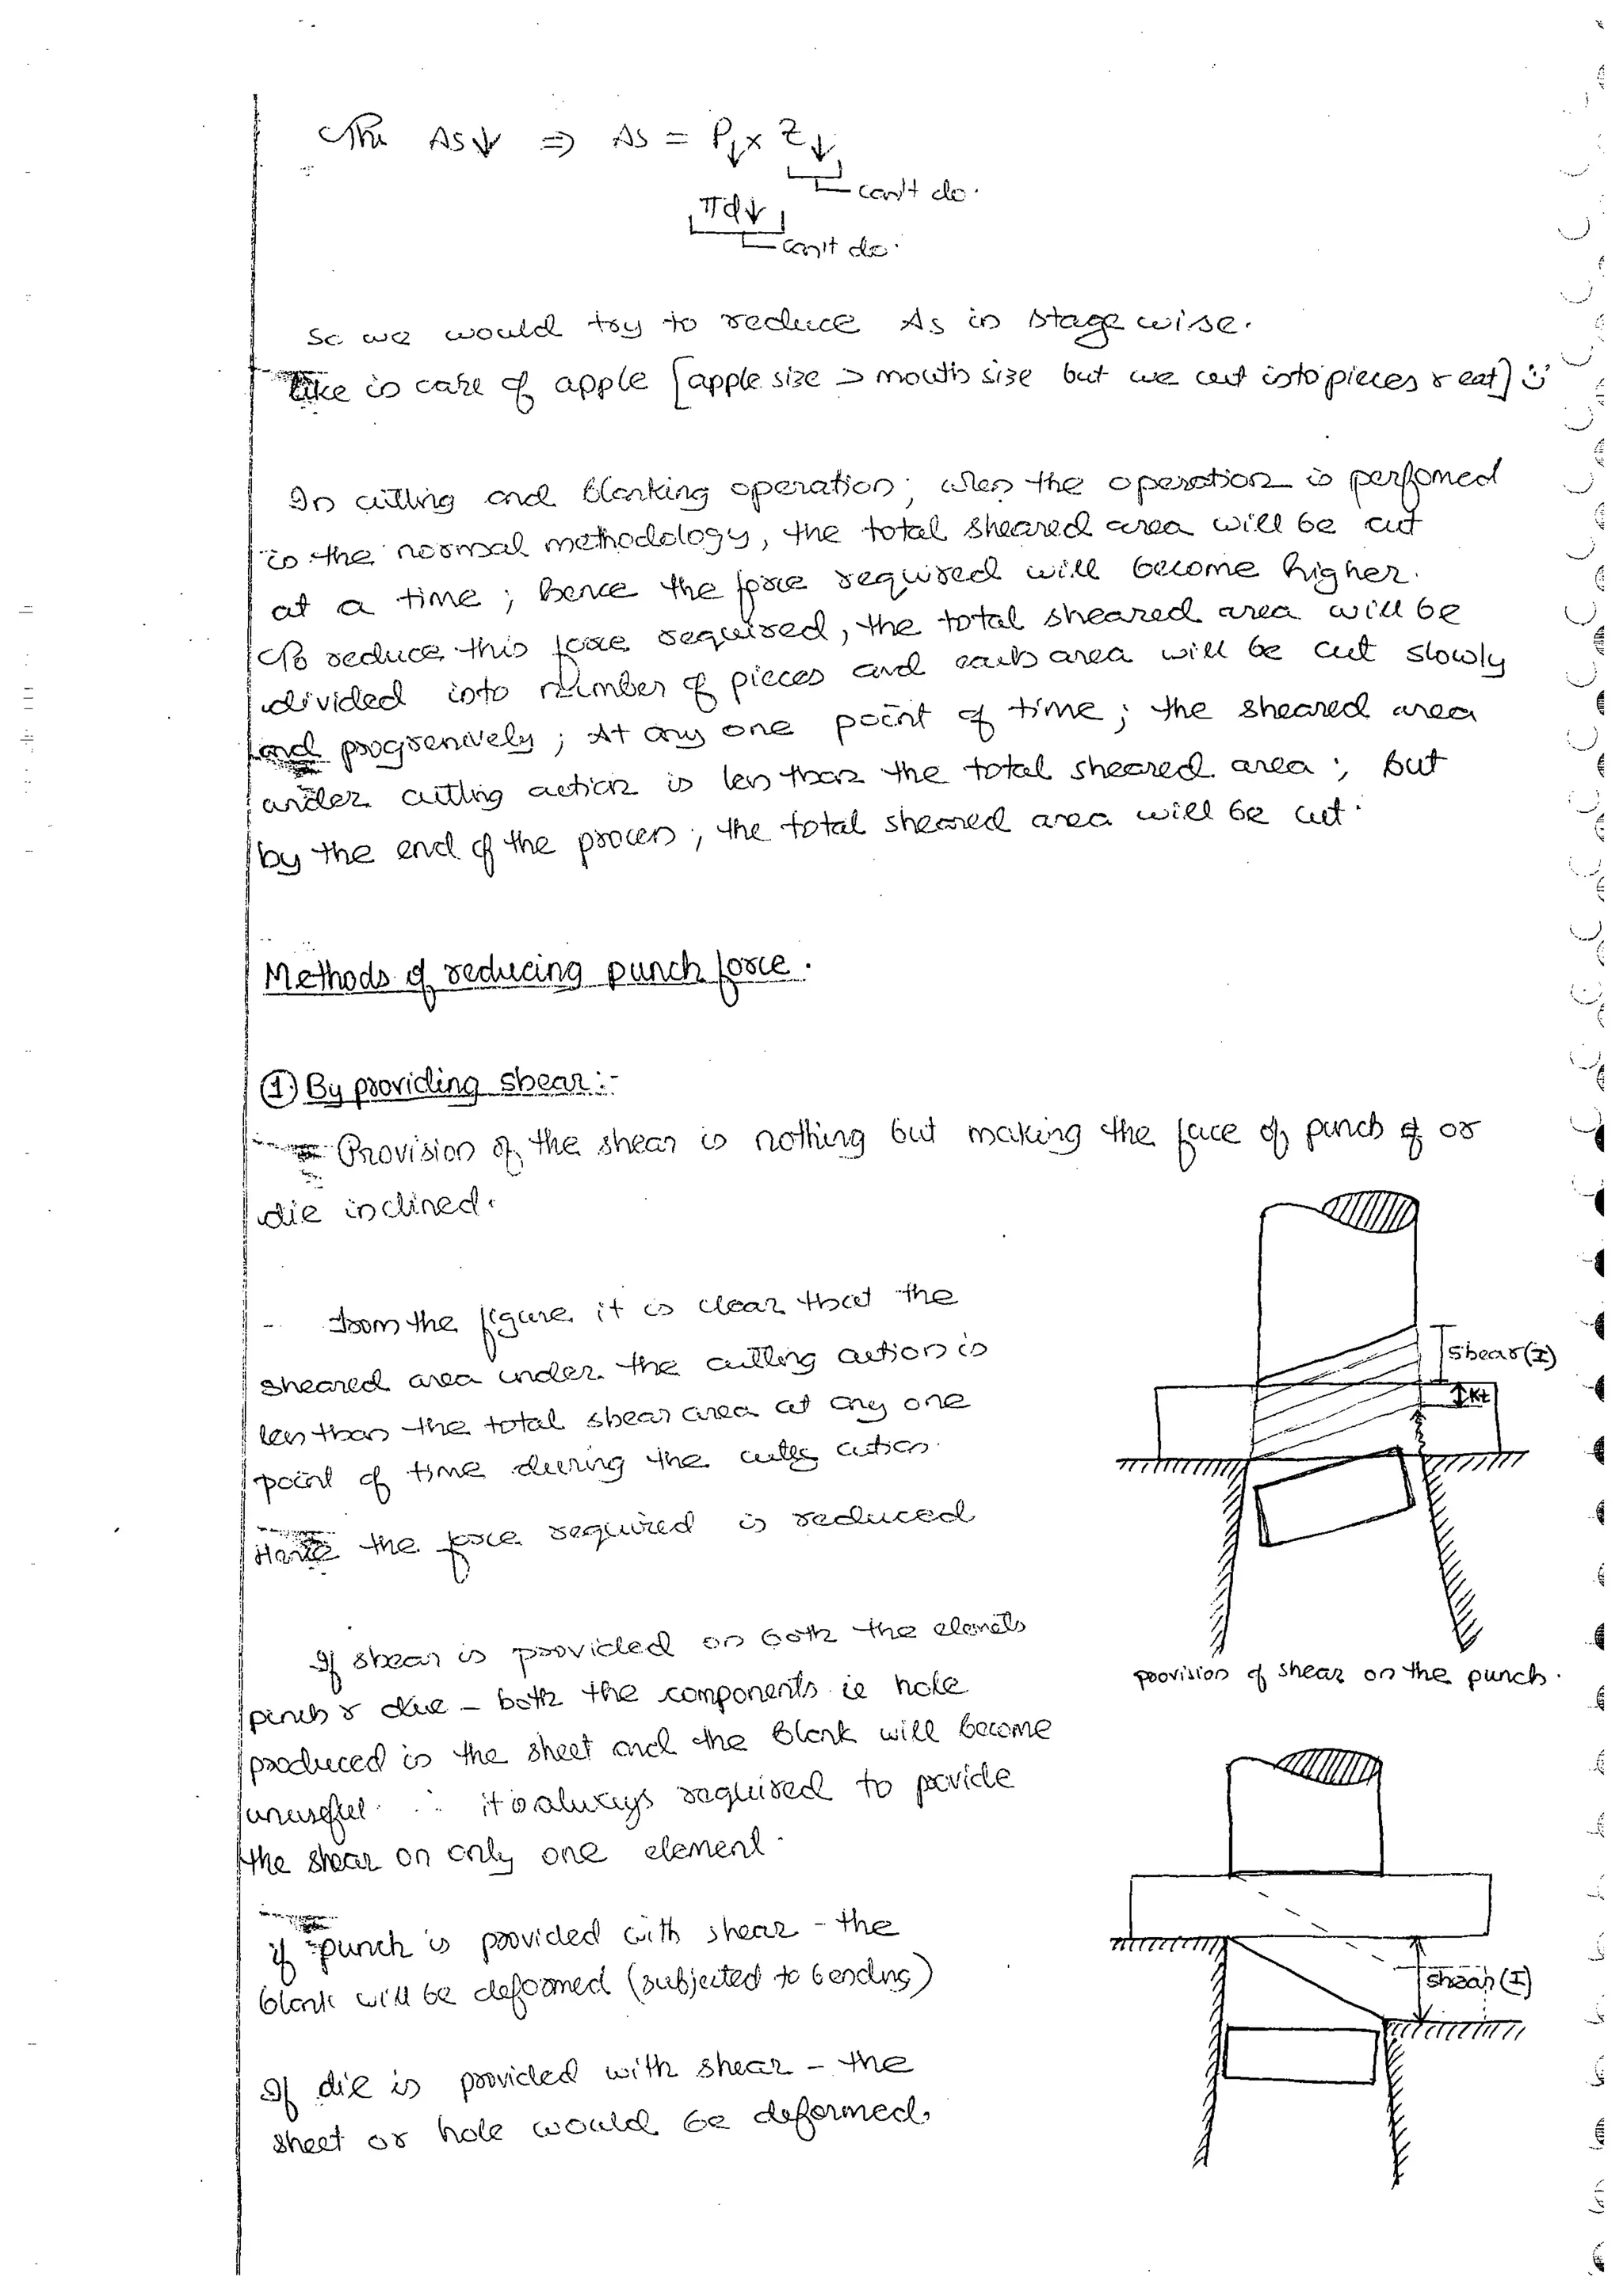 The As↓ ⇒ As = P↓ x Z↓
can't do.
πd↓
can't do.
So we would try to reduce As in stage wise.
like in case of apple [apple size > mouth size but we cut into pieces & eat] :)
In cutting and blanking operation; when the operation is perfomed
in the normal methodology, the total sheared area will be cut
at a time; hence the force required will become higher.
To reduce this force required, the total sheared area will be
divided into number of pieces and each area will be cut slowly
and progressively; At any one point of time; the sheared area
under cutting action is less than the total sheared area; but
by the end of the process; the total sheared area will be cut.
Methods of reducing punch force.
① By providing shear:-
- Provision of the shear is nothing but making the face of punch or
die inclined.
- from the figure it is clear that the
sheared area under the cutting action is
less than the total shear area at any one
point of time during the cutting action.
Hence the force required is reduced
If shear is provided on both the elements
punch & die - both the components ie hole
produced in the sheet and the blank will become
unuseful. ∴ it is always required to provide
the shear on only one element.
if punch is provided with shear - the
blank will be deformed (subjected to bending)
If die is provided with shear - the
sheet or hole would be deformed.
Shear(I)
Kt
provision of shear on the punch.
Shear(I)